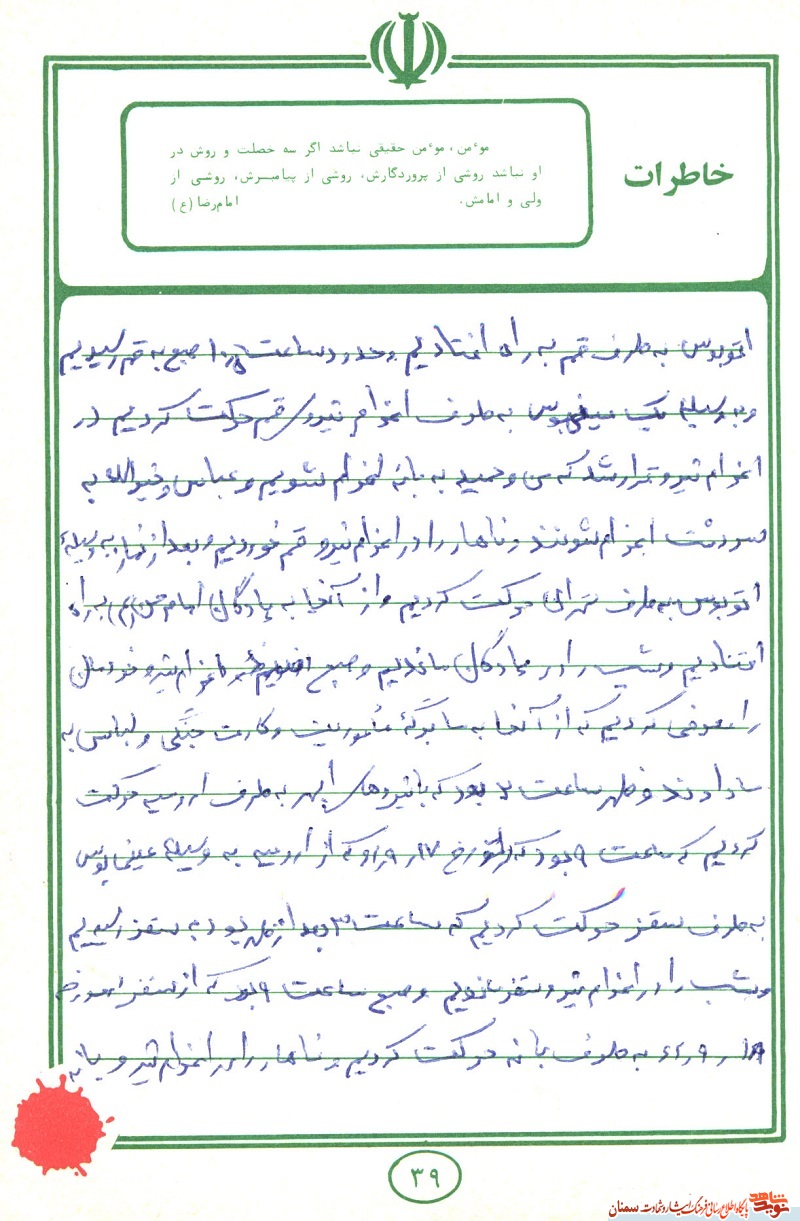 خاطرات
موٴمن، موٴمن حقیقی نباشد اگر سه خصلت و روش در
او نباشد روشی از پروردگارش، روشی از پیامبرش، روشی از
ولی و امامش. امام‌رضا (ع)
اتوبوس به طرف قم به راه افتادیم و حدود ساعت ۱۰٫۵ صبح به قم رسیدیم
و به وسیلهٔ یک مینی بوس به طرف اعزام نیروی قم حرکت کردیم در
اعزام نیرو قرار شد که من و حمید به بانه اعزام شویم و عباس و خیرالله به
سردشت اعزام شوند و ناهار را در اعزام نیرو قم خوردیم و بعد از نماز به وسیلهٔ
اتوبوس به طرف تهران حرکت کردیم و از آنجا به پادگان امام حسن (ع) به راه
افتادیم و شب را در پادگان ماندیم و صبح اعزام نیرو خودمان
را معرفی کردیم که از آنجا به ما برگهٔ مأموریت و کارت جنگی و لباس به
ما دادند و ظهر ساعت ۲ بود که با نیروهای به طرف ارومیه حرکت
کردیم که ساعت ۹ بود که در مورخ ۱۷ر۹ر که از ارومیه به وسیلهٔ مینی بوس
به طرف سقز حرکت کردیم که ساعت ۳ بعد از ظهر بود به سقز رسیدیم
و شب را در اعزام نیرو سقز ماندیم و صبح ساعت ۹ بود که از سقز مورخ
۱۸ر۹ر به طرف بانه حرکت کردیم و ناهار را در اعزام نیرو بانه
۳۹
نوید شاهد
پایگاه اطلاع رسانی فرهنگ ایثار و شهادت سمنان